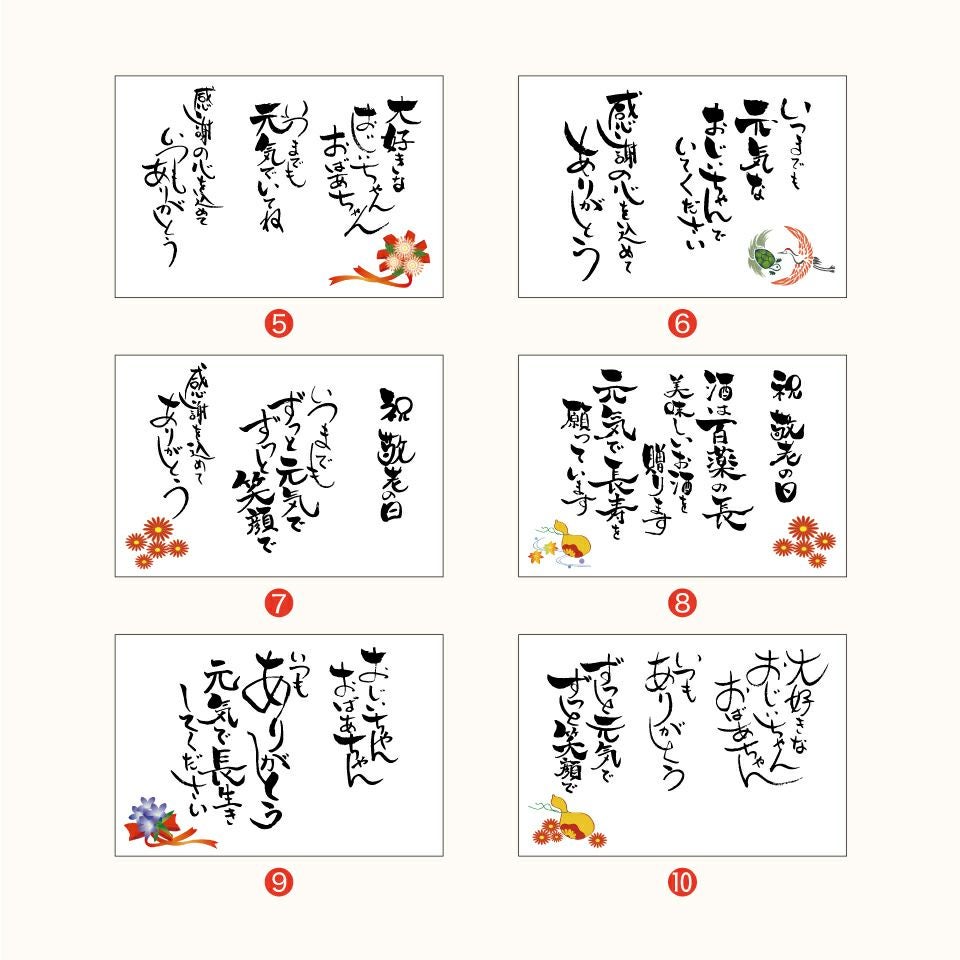 大好きな
おじいちゃん
おばあちゃん
いつまでも
元気でいてね
感謝の心を込めて
いつも
ありがとう
5
いつまでも
元気な
おじいちゃんで
いてください
感謝の心を込めて
ありがとう
6
祝 敬老の日
いつまでも
ずっと元気で
ずっと笑顔で
感謝を込めて
ありがとう
7
祝 敬老の日
酒は百薬の長
美味しいお酒を
贈ります
元気で長寿を
願っています
8
おじいちゃん
おばあちゃん
いつも
ありがとう
元気で長生き
してください
9
大好きな
おじいちゃん
おばあちゃん
いつも
ありがとう
ずっと元気で
ずっと笑顔で
10